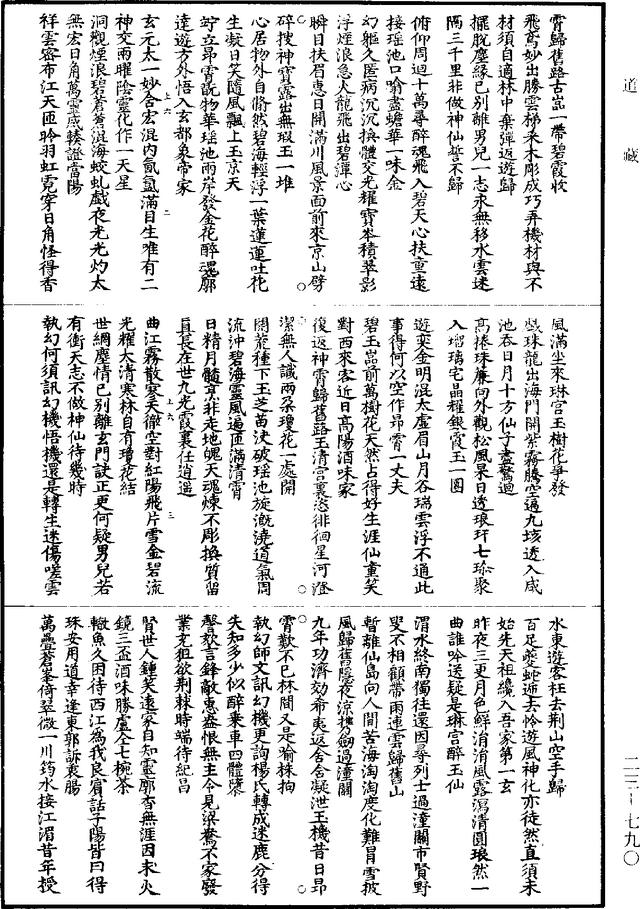 道藏
霄歸舊路古崑一帶碧霞收
飛鳶妙出勝雲梯釆木彫成巧弄機材與不
材須自適林中棄彈返遊歸
擺脫塵緣已別離男兒一志永無移水雲迷
隔三千里非做神仙誓不歸
俯仰周迴十萬尋醉魂飛入碧天心扶童遠
接瑤池口噏盡蟾華一味金
幻軀久匿病沉沉換體交光耀寶岑積翠影
浮煙浪急火龍飛出碧潭心
瞬目扶眉惠日開滿川風景面前來京山劈
碎搜神寶露出無瑕玉一堆
心居物外自翛然碧海輕浮一葉蓮蓮吐花
生凝日笑隨風飄上玉京天
竚立昂霄翫物華瑤池兩岸發金花醉魂廓
達遊方外悟入玄都象帝家
玄元太一妙含宏混内氤氳滿目生唯有二
神交兩曜陰靈化作一天星
洞觀煙浪碧蒼蒼混海蛟虬戲夜光光灼太
無宏日角萬靈咸輳證當陽
祥雲密布江天匝昤羽虹霓穿日角怪得香
風滿坐來琳宫玉樹花爭發
戲珠龍出海門開紫霧騰空遍九垓透入咸
池吞日月十方仙子盡驚迴
高捲珠簾向外觀松風杲日透琅玕七珎聚
入瑠璃宅晶耀銀霞玉一團
遊奕金明混太虛眉山月谷瑞雲浮不通此
事得何以空作昂霄一丈夫
碧玉嵓前萬樹花天然占得好生涯仙童笑
對西來客近日高陽酒味家
復返神霄歸舊路玉清宫裏恣徘徊星河澄
潔無人識兩朵瓊花一處開
閬荒種下玉芝苗決破瑤池旋漑澆道氣周
流沖碧海靈風遍匝滿清霄
日精月髓烹非走地魄天魂煉不彫換質留
眞長在世九光霞裏任逍遥
曲江霧散寒天徹空對紅陽飛片雪金碧流
光耀太清寒林自有瓊花結
世網塵情已別離玄門訣正更何疑男兒若
有衝天志不做神仙待幾時
執幻何須訊幻機悟機還是轉生迷傷嗟雲
水東遊客枉去荆山空手歸
百足夔蚿遞去怜遊風神化亦徒然直須未
始先天祖纔入吾家第一玄
昨夜三更月色鮮涓涓風露瀉清圓琅然一
曲誰吟透疑是琳宫醉玉仙
渭水終南獨往還因尋列士過潼關市賢野
叟不相顧帶雨連雲歸舊山
暫離仙島向人間苦海淘淘度化難冒雪披
風歸舊隱夜涼攜劒過潼關
九年功濟効希夷返舍含凝泄玉機昔日昂
霄歎不已林間又是喻株拘
執幻師文訊幻機更詢楊氏轉成迷鹿分得
失知多少似醉乘車四體隳
謦欬言鋒敵惠盎恨無主今見梁鴦不家發
業充狂欲荆棘時端待紀昌
賢世人鍾笑遠家自知靈廓杳無涯因未火
鏡三盃酒味勝盧仝七椀茶
轍魚久困待西江為我良賓詰子陽皆曰得
珠安用道幸逢東郭訴衷腸
萬疊蒼峯倚翠微一川筠水接江湄昔年授
二三—七九〇